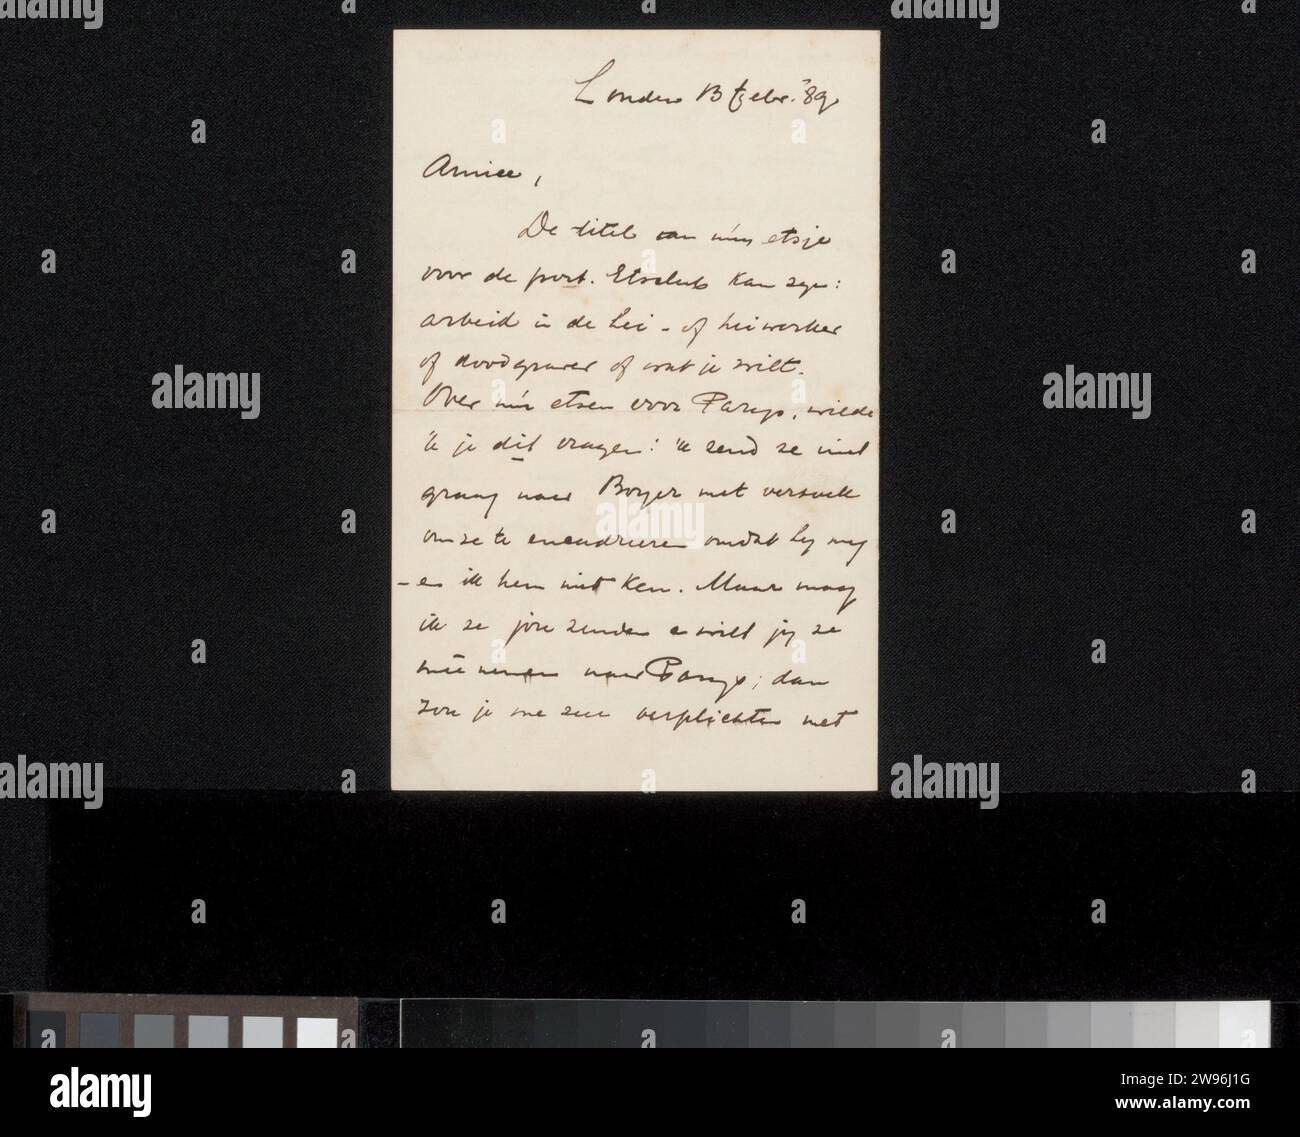 Londen 13 Febr. '89
Amice,
De titel van m'ijn etsje
voor de port. Etsclub kan zijn:
arbeid in de hei - of heiwerker
of doodgraver of wat je wilt.
Over m'n etsen voor Parijs, wilde
ik je dit vragen: ik zend ze niet
graag naar Boyer met verzoek
om ze te encadreeren omdat hij mij
- en ik hem niet ken. Maar mag
ik ze jou zenden en wilt jij ze
meê nemen naar Parijs; dan
zou je me zeer verplichten met
alamy
Image ID: 2W96J1G
www.alamy.com